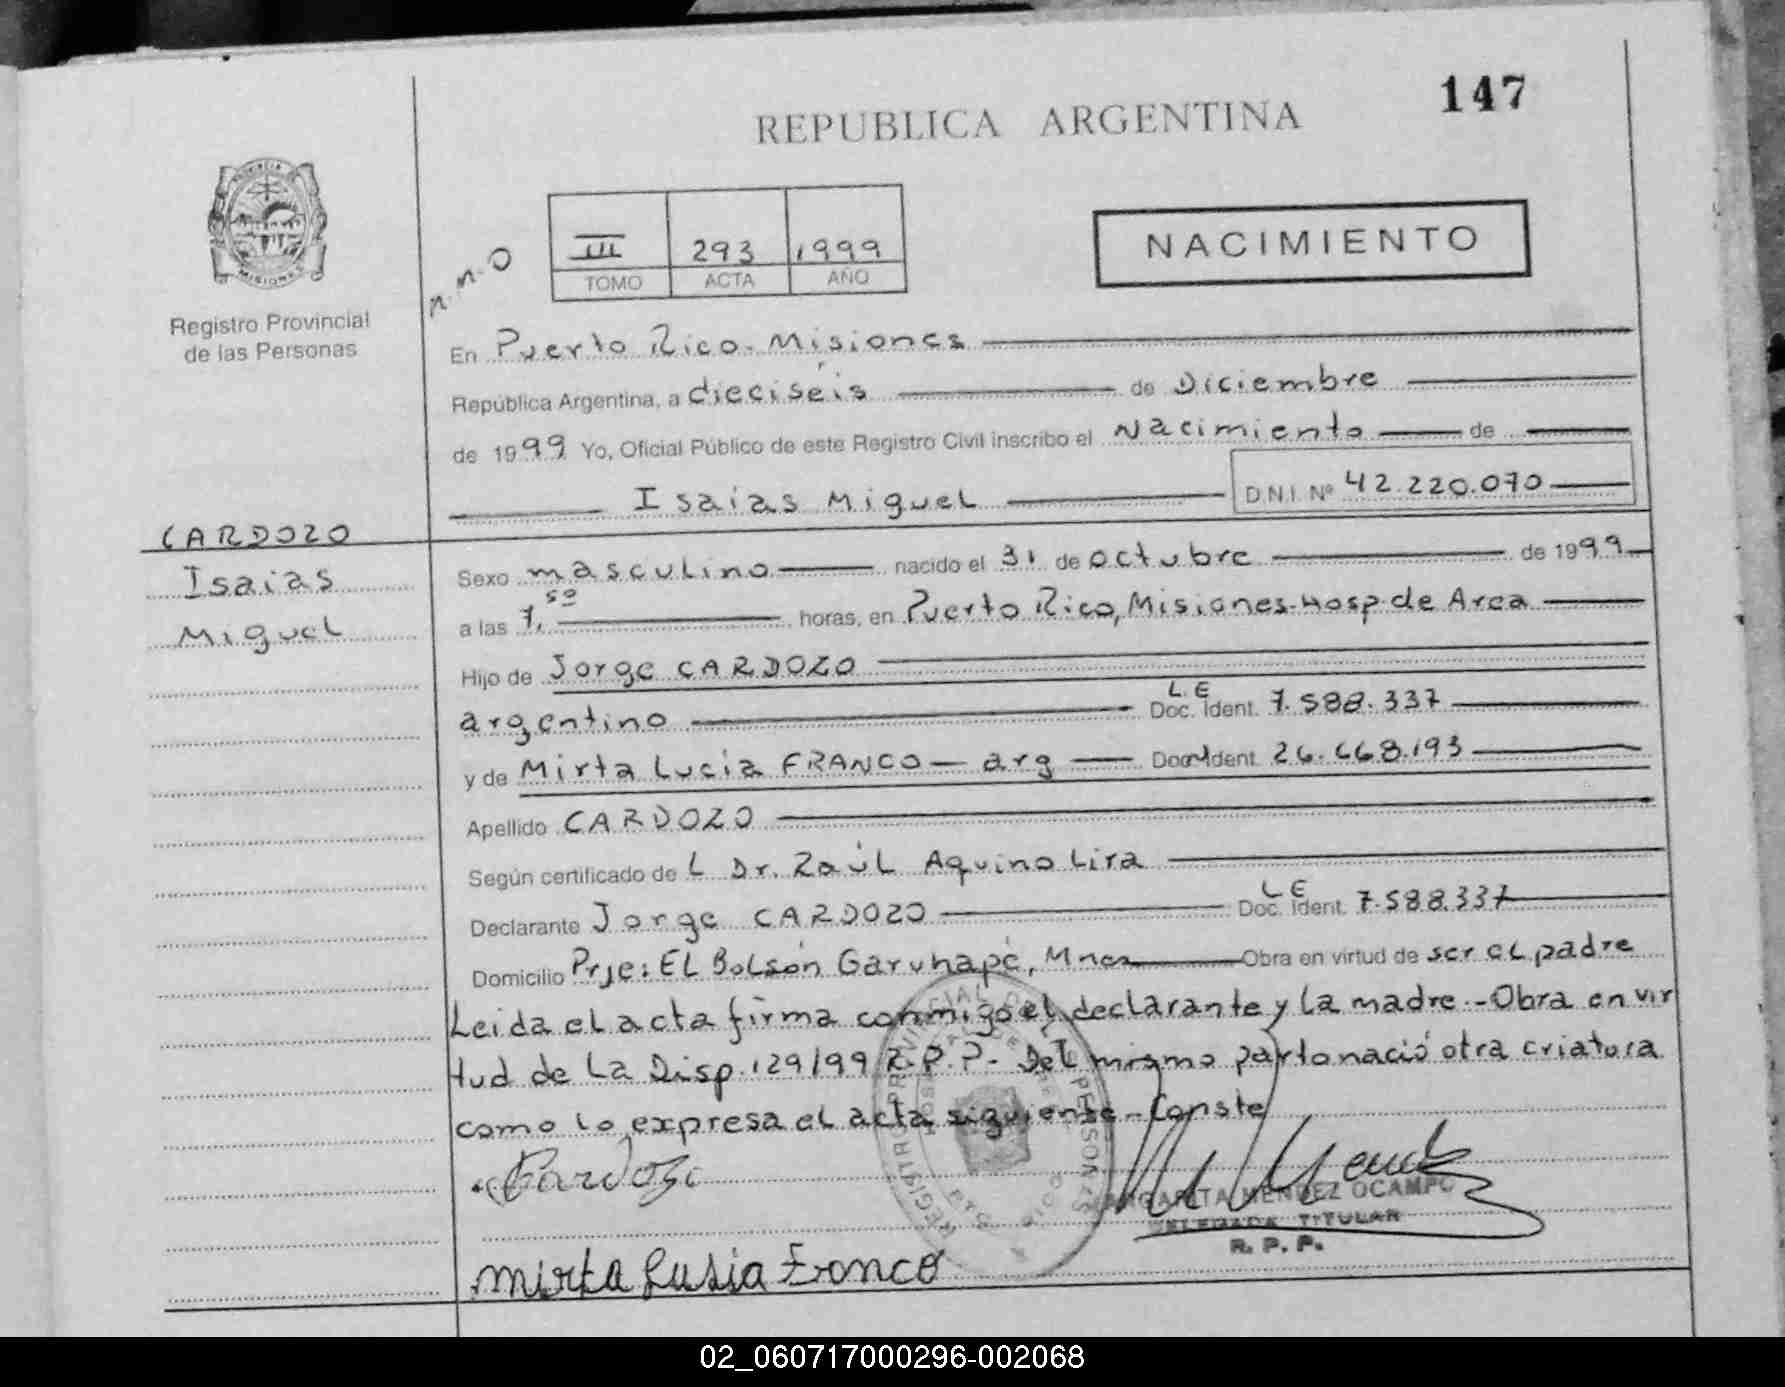 147
REPUBLICA ARGENTINA
PROVINCIA DE
MISIONES
Registro Provincial
de las Personas
n.n.o
III 293 1999
TOMO ACTA AÑO
NACIMIENTO
En Puerto Rico - Misiones
República Argentina, a dieciséis de Diciembre
de 1999 Yo, Oficial Público de este Registro Civil inscribo el Nacimiento de
Isaias Miguel D.N.I. Nº 42.220.070
CARDOZO
Isaias
Miguel
Sexo masculino nacido el 31 de octubre de 1999
a las 7,50 horas, en Puerto Rico, Misiones-Hosp de Area
Hijo de Jorge CARDOZO
argentino L.E Doc. Ident. 7.588.337
y de Mirta Lucia FRANCO - arg Doc Ident. 26.668.193
Apellido CARDOZO
Según certificado de L Dr. Raúl Aquino Lira
Declarante Jorge CARDOZO L E Doc. Ident. 7.588.337
Domicilio Prje: El Bolsón Garuhapé, Mnes Obra en virtud de ser el padre
Leida el acta firma conmigo el declarante y la madre.-Obra en vir
tud de la Disp. 129/99 R.P.P.- Del mismo parto nació otra criatura
como lo expresa el acta siguiente - Conste
Cardozo
MARGARITA MENDEZ OCAMPO
DELEGADA TITULAR
R. P. P.
Mirta Lusia Franco
02_060717000296-002068